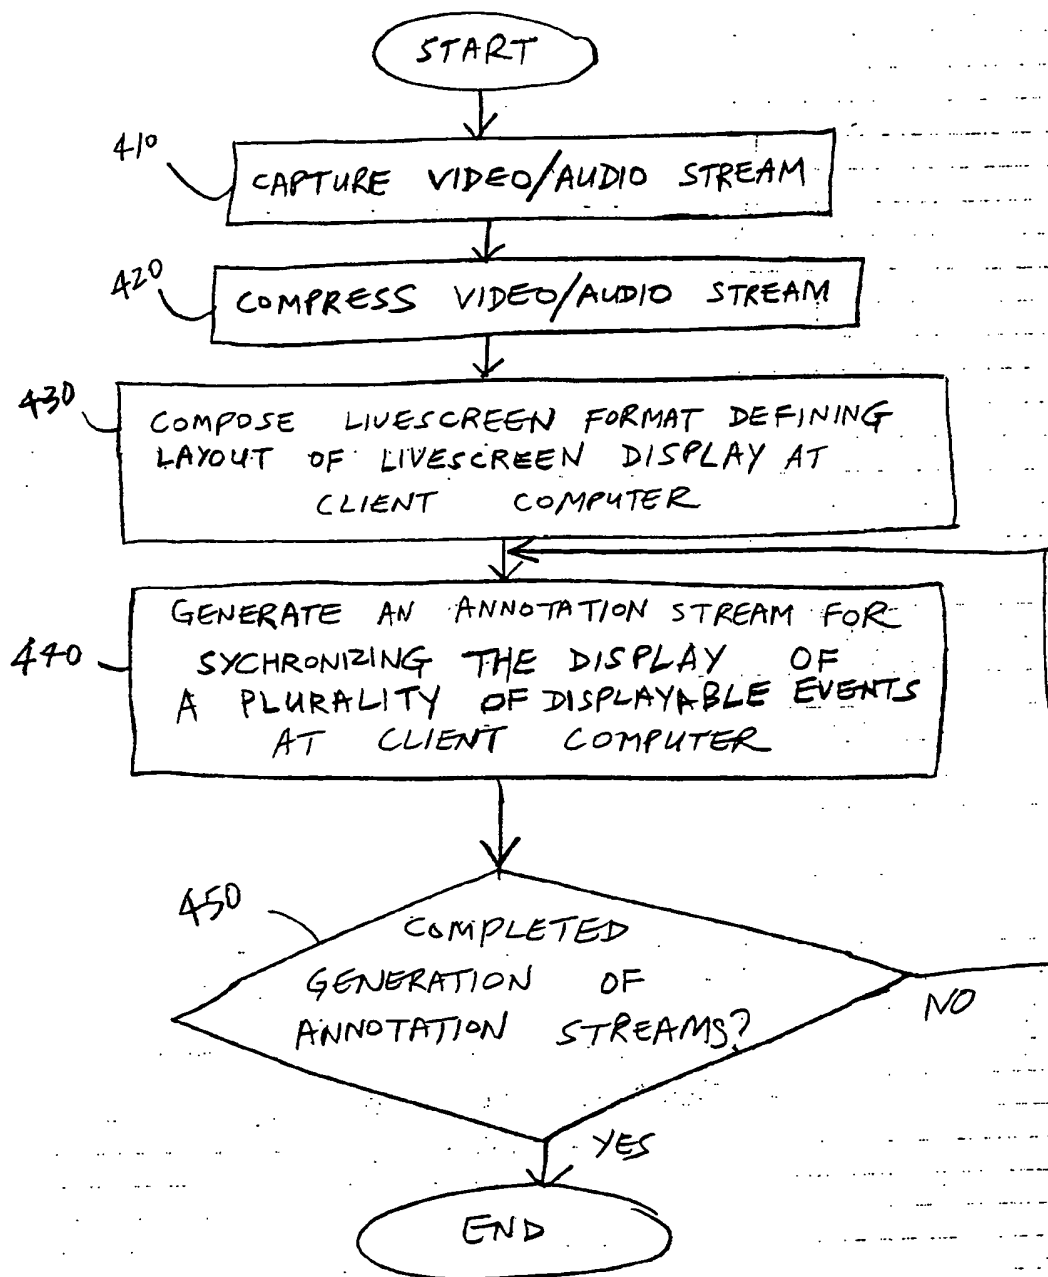 START
410
CAPTURE VIDEO/AUDIO STREAM
420
COMPRESS VIDEO/AUDIO STREAM
430
COMPOSE LIVESCREEN FORMAT DEFINING
LAYOUT OF LIVESCREEN DISPLAY AT
CLIENT COMPUTER
440
GENERATE AN ANNOTATION STREAM FOR
SYCHRONIZING THE DISPLAY OF
A PLURALITY OF DISPLAYABLE EVENTS
AT CLIENT COMPUTER
450
COMPLETED
GENERATION OF
ANNOTATION STREAMS?
NO
YES
END